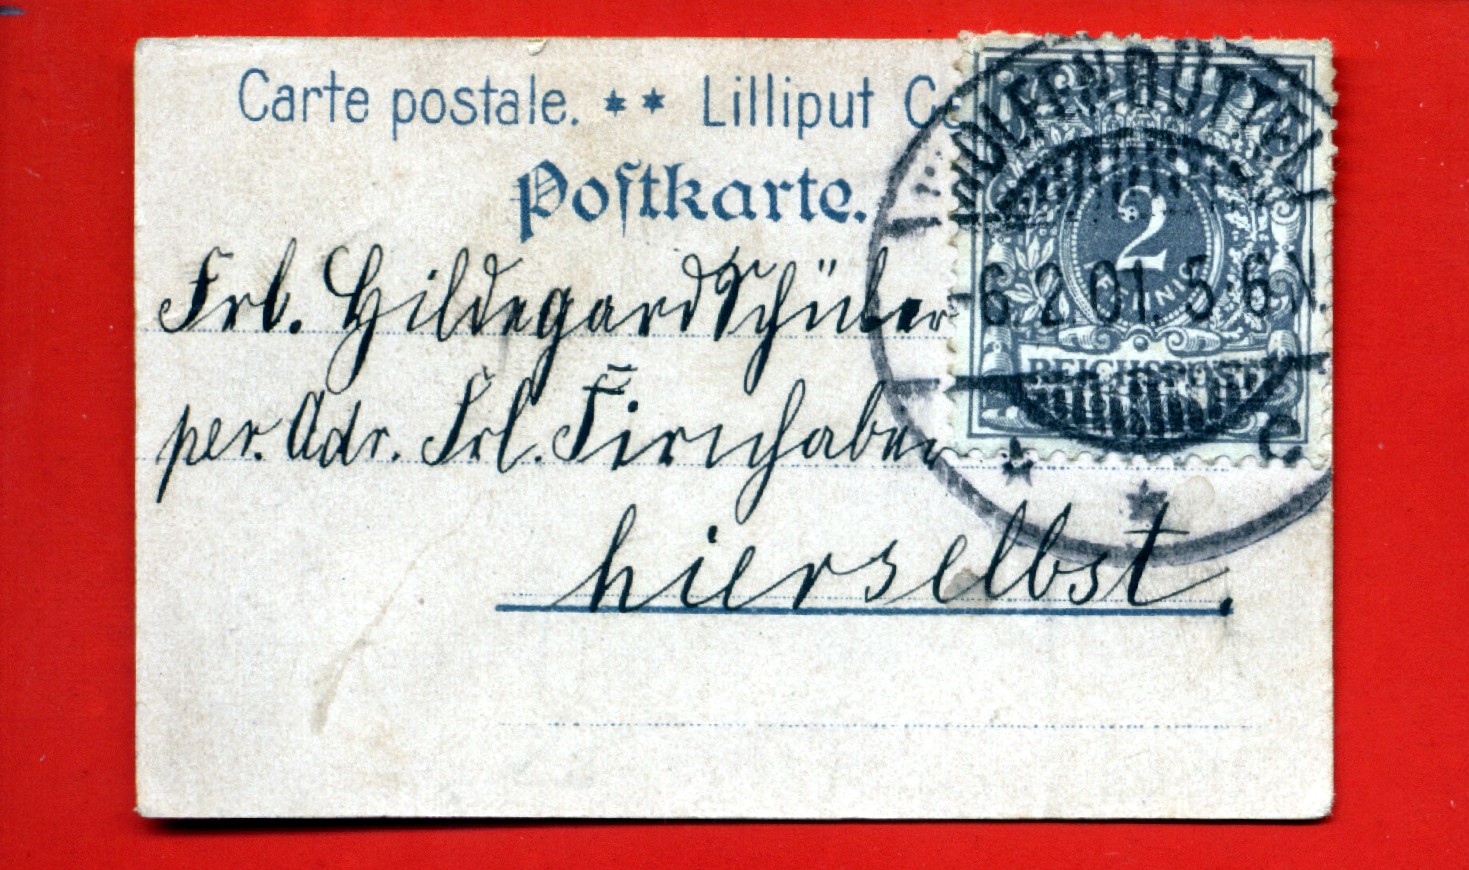 Carte postale. ** Lilliput Ca
Postkarte.
WOLFENBÜTTEL
2
PFENNIG
-6.2.01. 5-6N.
REICHSPOST
c
Frl. Hildegard Schüler
per. Adr. Frl. Firnhaber
hierselbst.